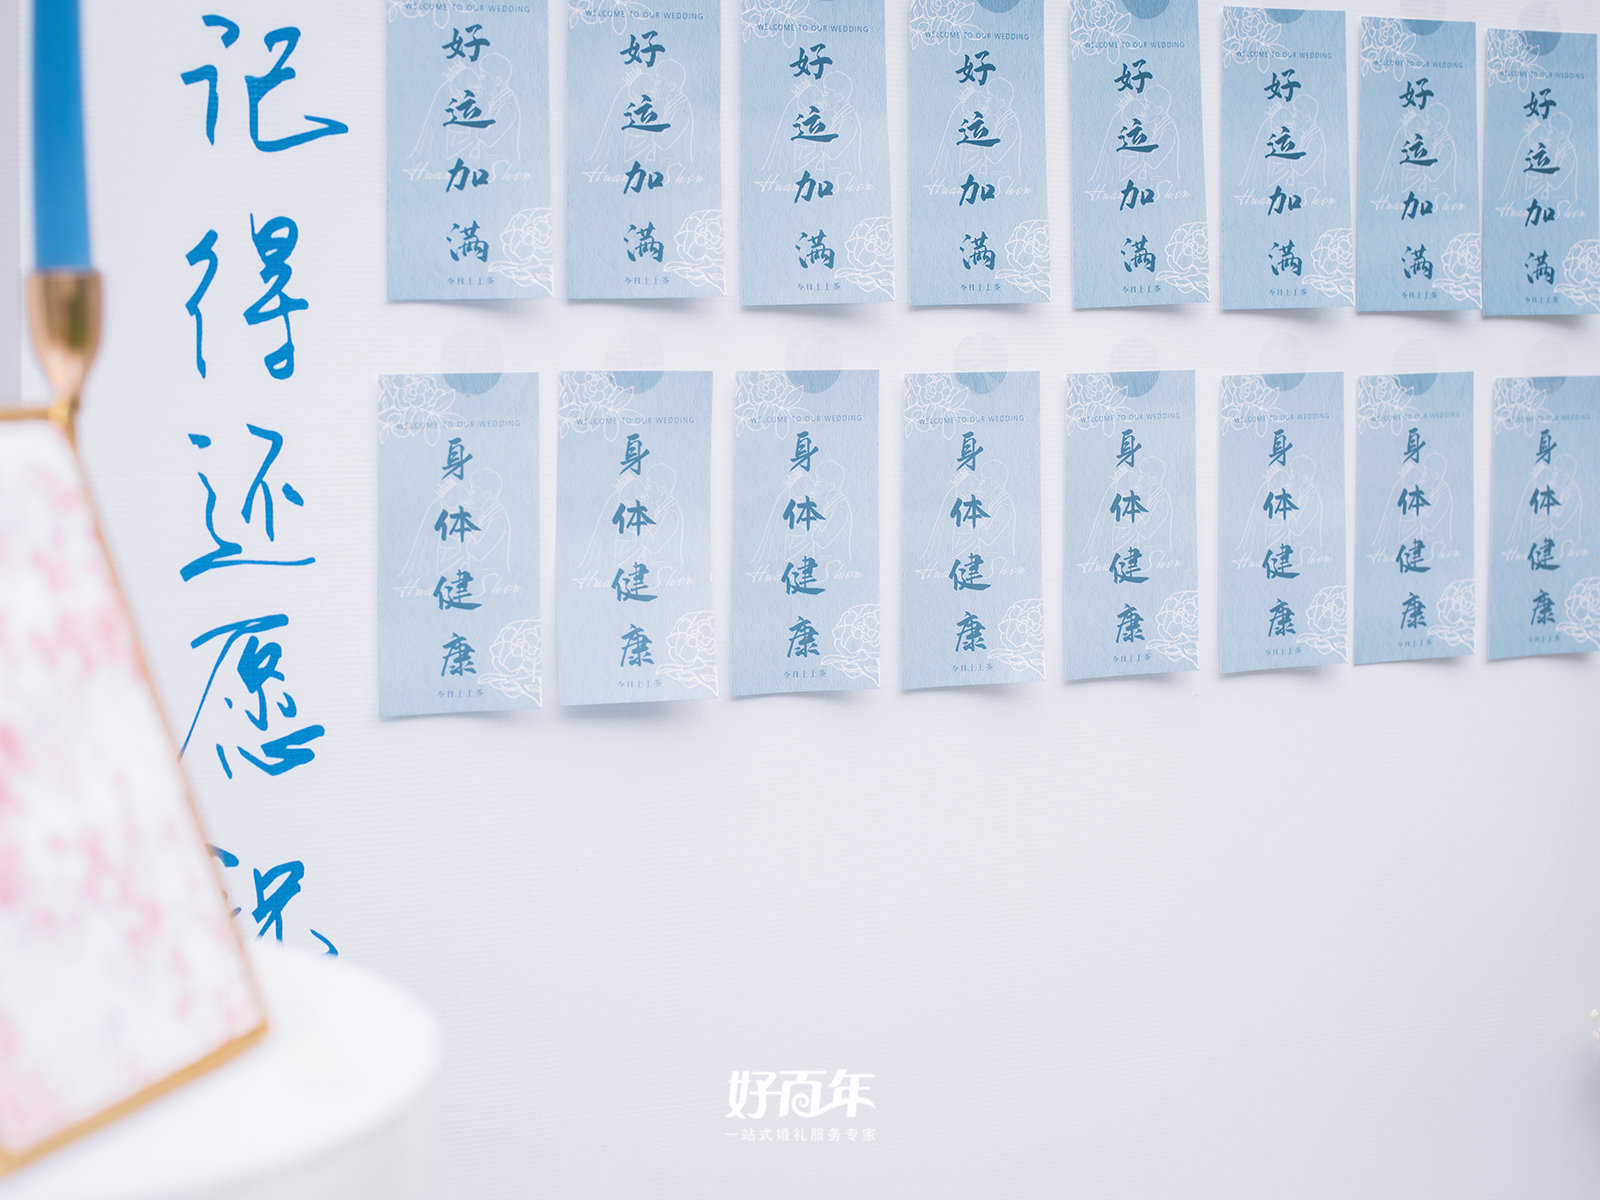 记得还愿
WELCOME TO OUR WEDDING
好运加满
今日上上签
WELCOME TO OUR WEDDING
好运加满
今日上上签
WELCOME TO OUR WEDDING
好运加满
今日上上签
WELCOME TO OUR WEDDING
好运加满
今日上上签
WELCOME TO OUR WEDDING
好运加满
今日上上签
WELCOME TO OUR WEDDING
好运加满
今日上上签
WELCOME TO OUR WEDDING
好运加满
今日上上签
WELCOME TO OUR WEDDING
好运加满
今日上上签
WELCOME TO OUR WEDDING
身体健康
今日上上签
WELCOME TO OUR WEDDING
身体健康
今日上上签
WELCOME TO OUR WEDDING
身体健康
今日上上签
WELCOME TO OUR WEDDING
身体健康
今日上上签
WELCOME TO OUR WEDDING
身体健康
今日上上签
WELCOME TO OUR WEDDING
身体健康
今日上上签
WELCOME TO OUR WEDDING
身体健康
今日上上签
WELCOME TO OUR WEDDING
身体健康
今日上上签
好百年
一站式婚礼服务专家